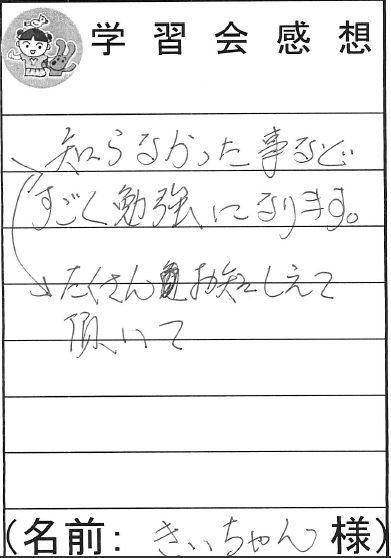 学習会感想
知らなかった事など
すごく勉強になります。
たくさんお知しえて
頂いて
(名前: きぃちゃん 様)